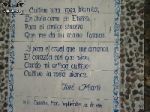 Cultivo una rosa blanca,
En Julio como en Enero,
Para el amigo sincero
Que me da su mano franca.
Y para el cruel que me arranca
El corazón con que vivo,
Cardo ni ortiga cultivo:
Cultivo la rosa blanca.
José Martí